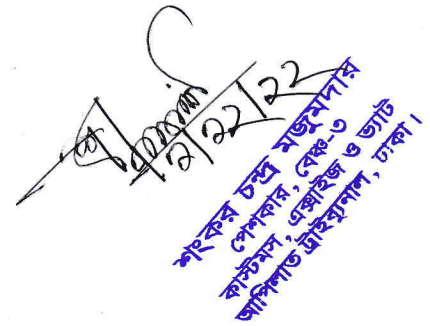 ২/২২/২২
শংকর চন্দ্র মজুমদার
পেশকার, বেঞ্চ-৩
কাস্টমস, এক্সাইজ ও ভ্যাট
আপিলাত ট্রাইব্যুনাল, ঢাকা।